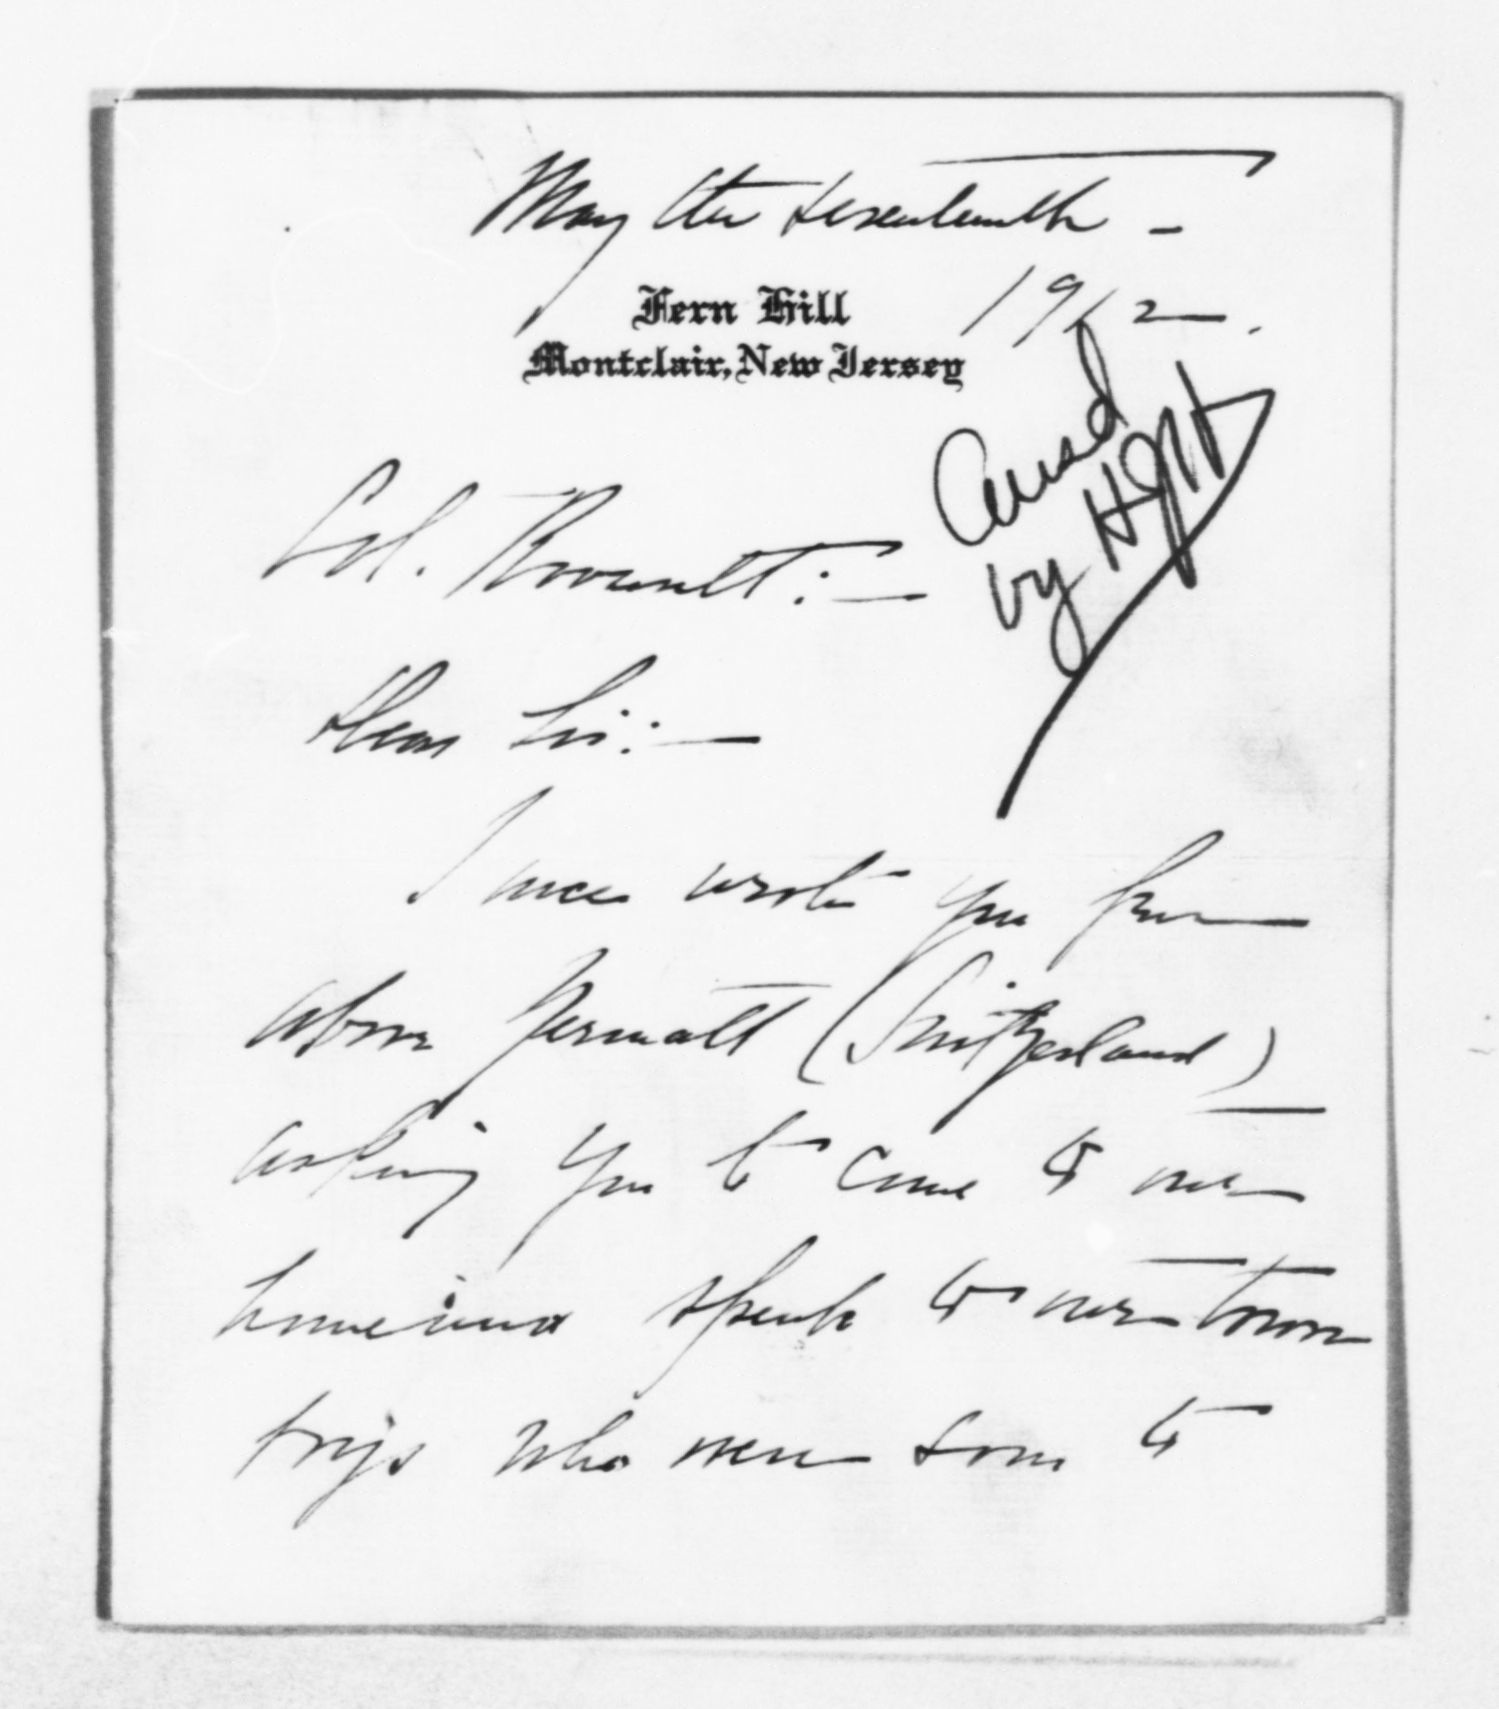 May the seventeenth –
1912.
Fern Hill
Montclair, New Jersey
Ansd
by
Col. Roosevelt:—
Dear Sir:—
I once wrote you from
above Zermatt (Switzerland)
asking you to come to our
home and speak to our town
boys who were soon to